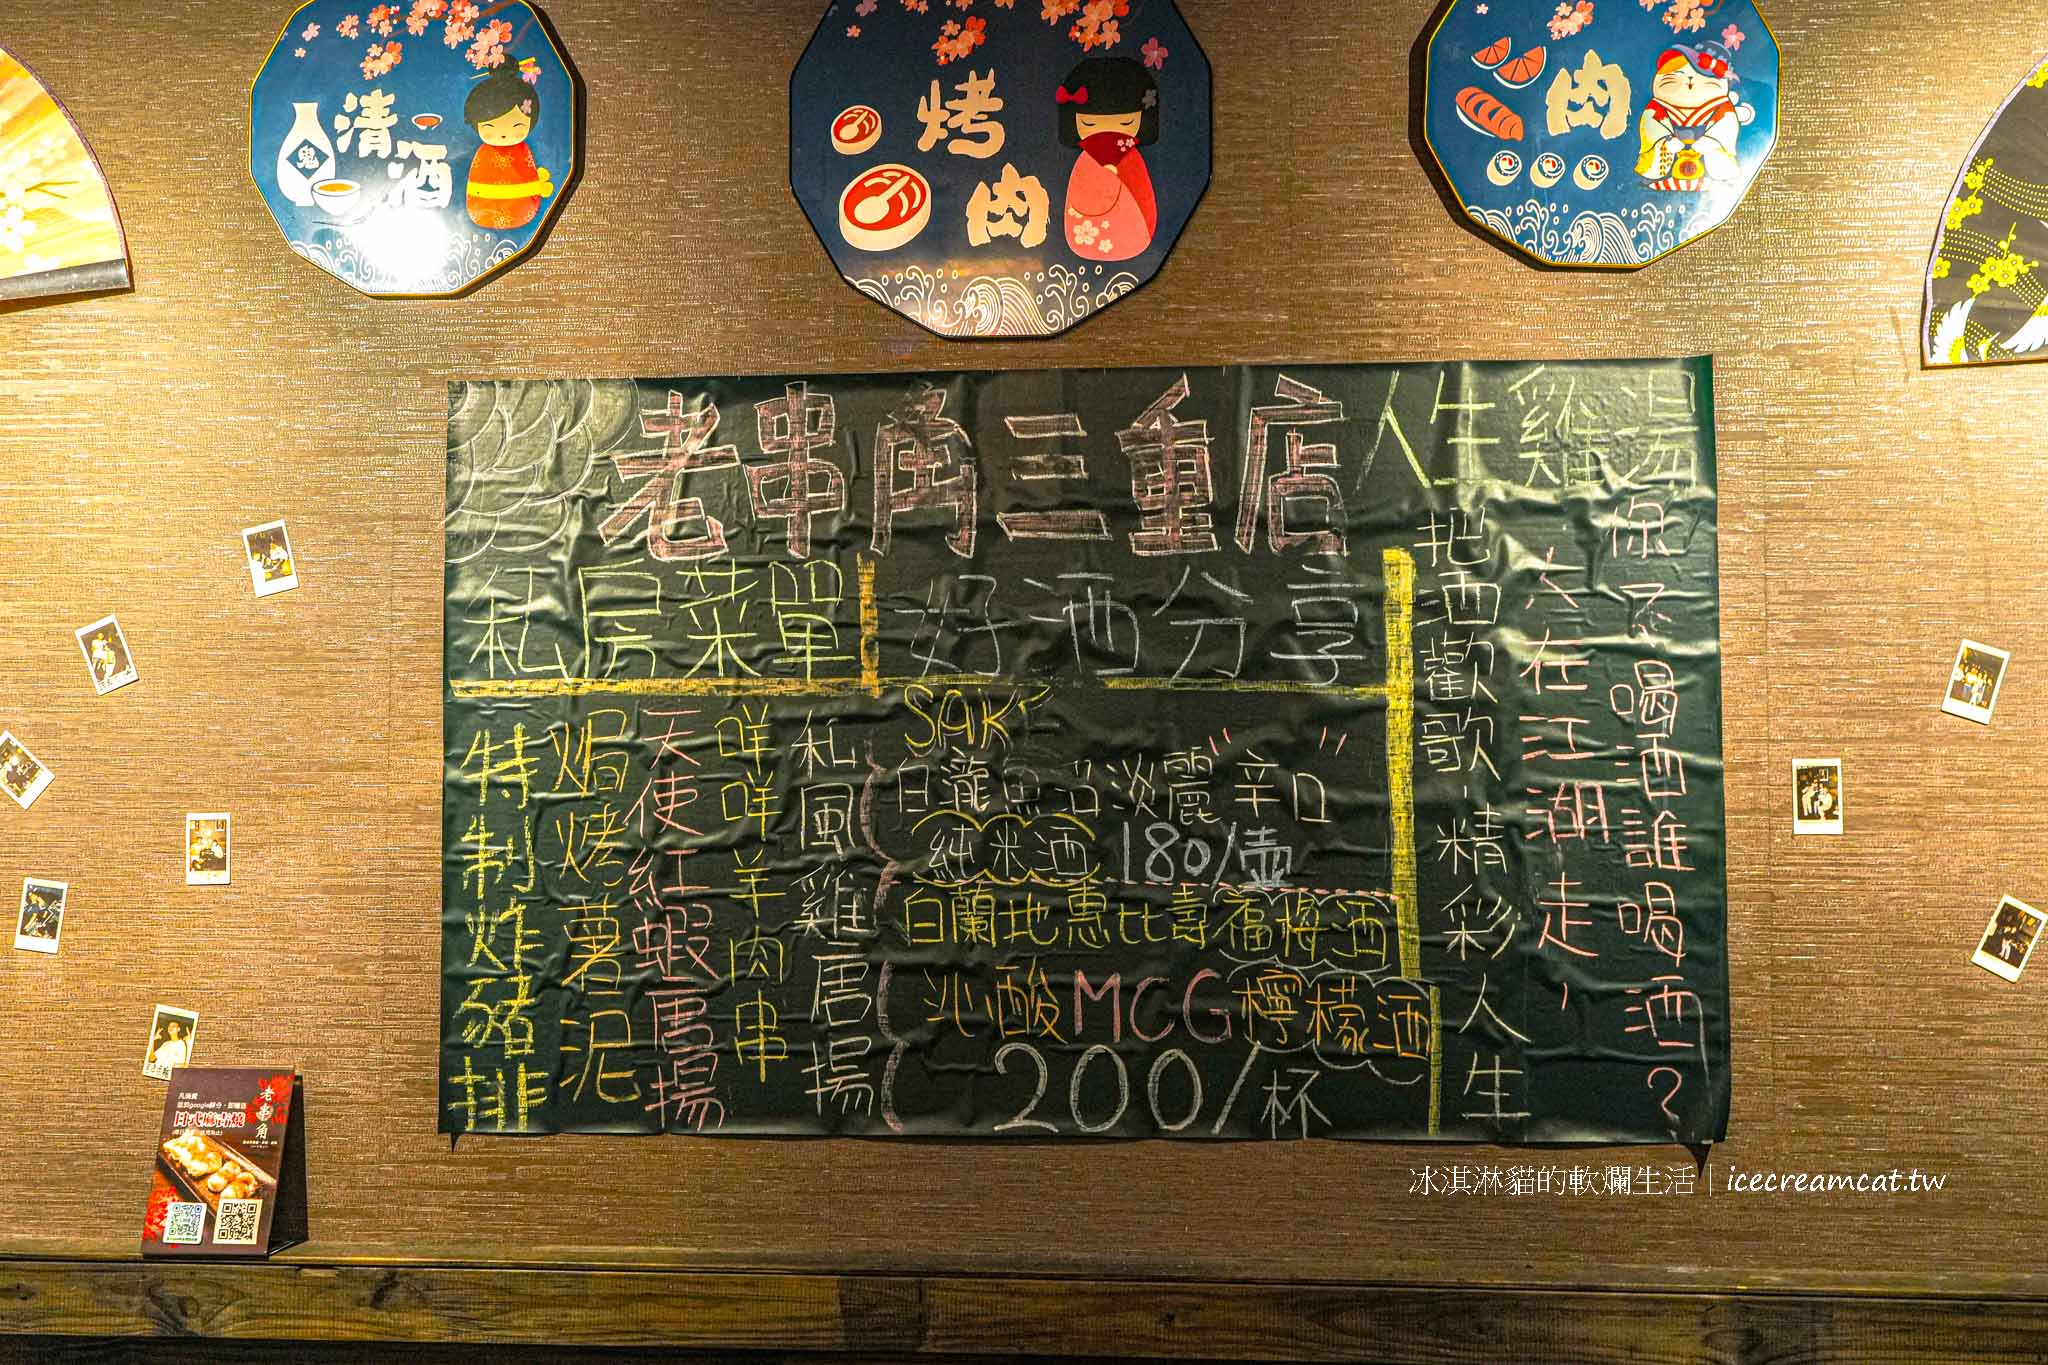 清酒
鬼
烤肉
肉
老串角三重店
人生雞湯
你不喝酒誰喝酒?
人在江湖走,
把酒歡歌,精彩人生
私房菜單
好酒分享
特制炸豬排
焗烤薯泥
天使紅蝦唐揚
咩咩羊肉串
和風雞唐揚
SAKE
白瀧魚沼淡麗"辛口"
純米酒 180/壺
白蘭地惠比壽福梅酒
沁酸MCG檸檬酒
200/杯
老串角
日式麻吉燒
冰淇淋貓的軟爛生活|icecreamcat.tw